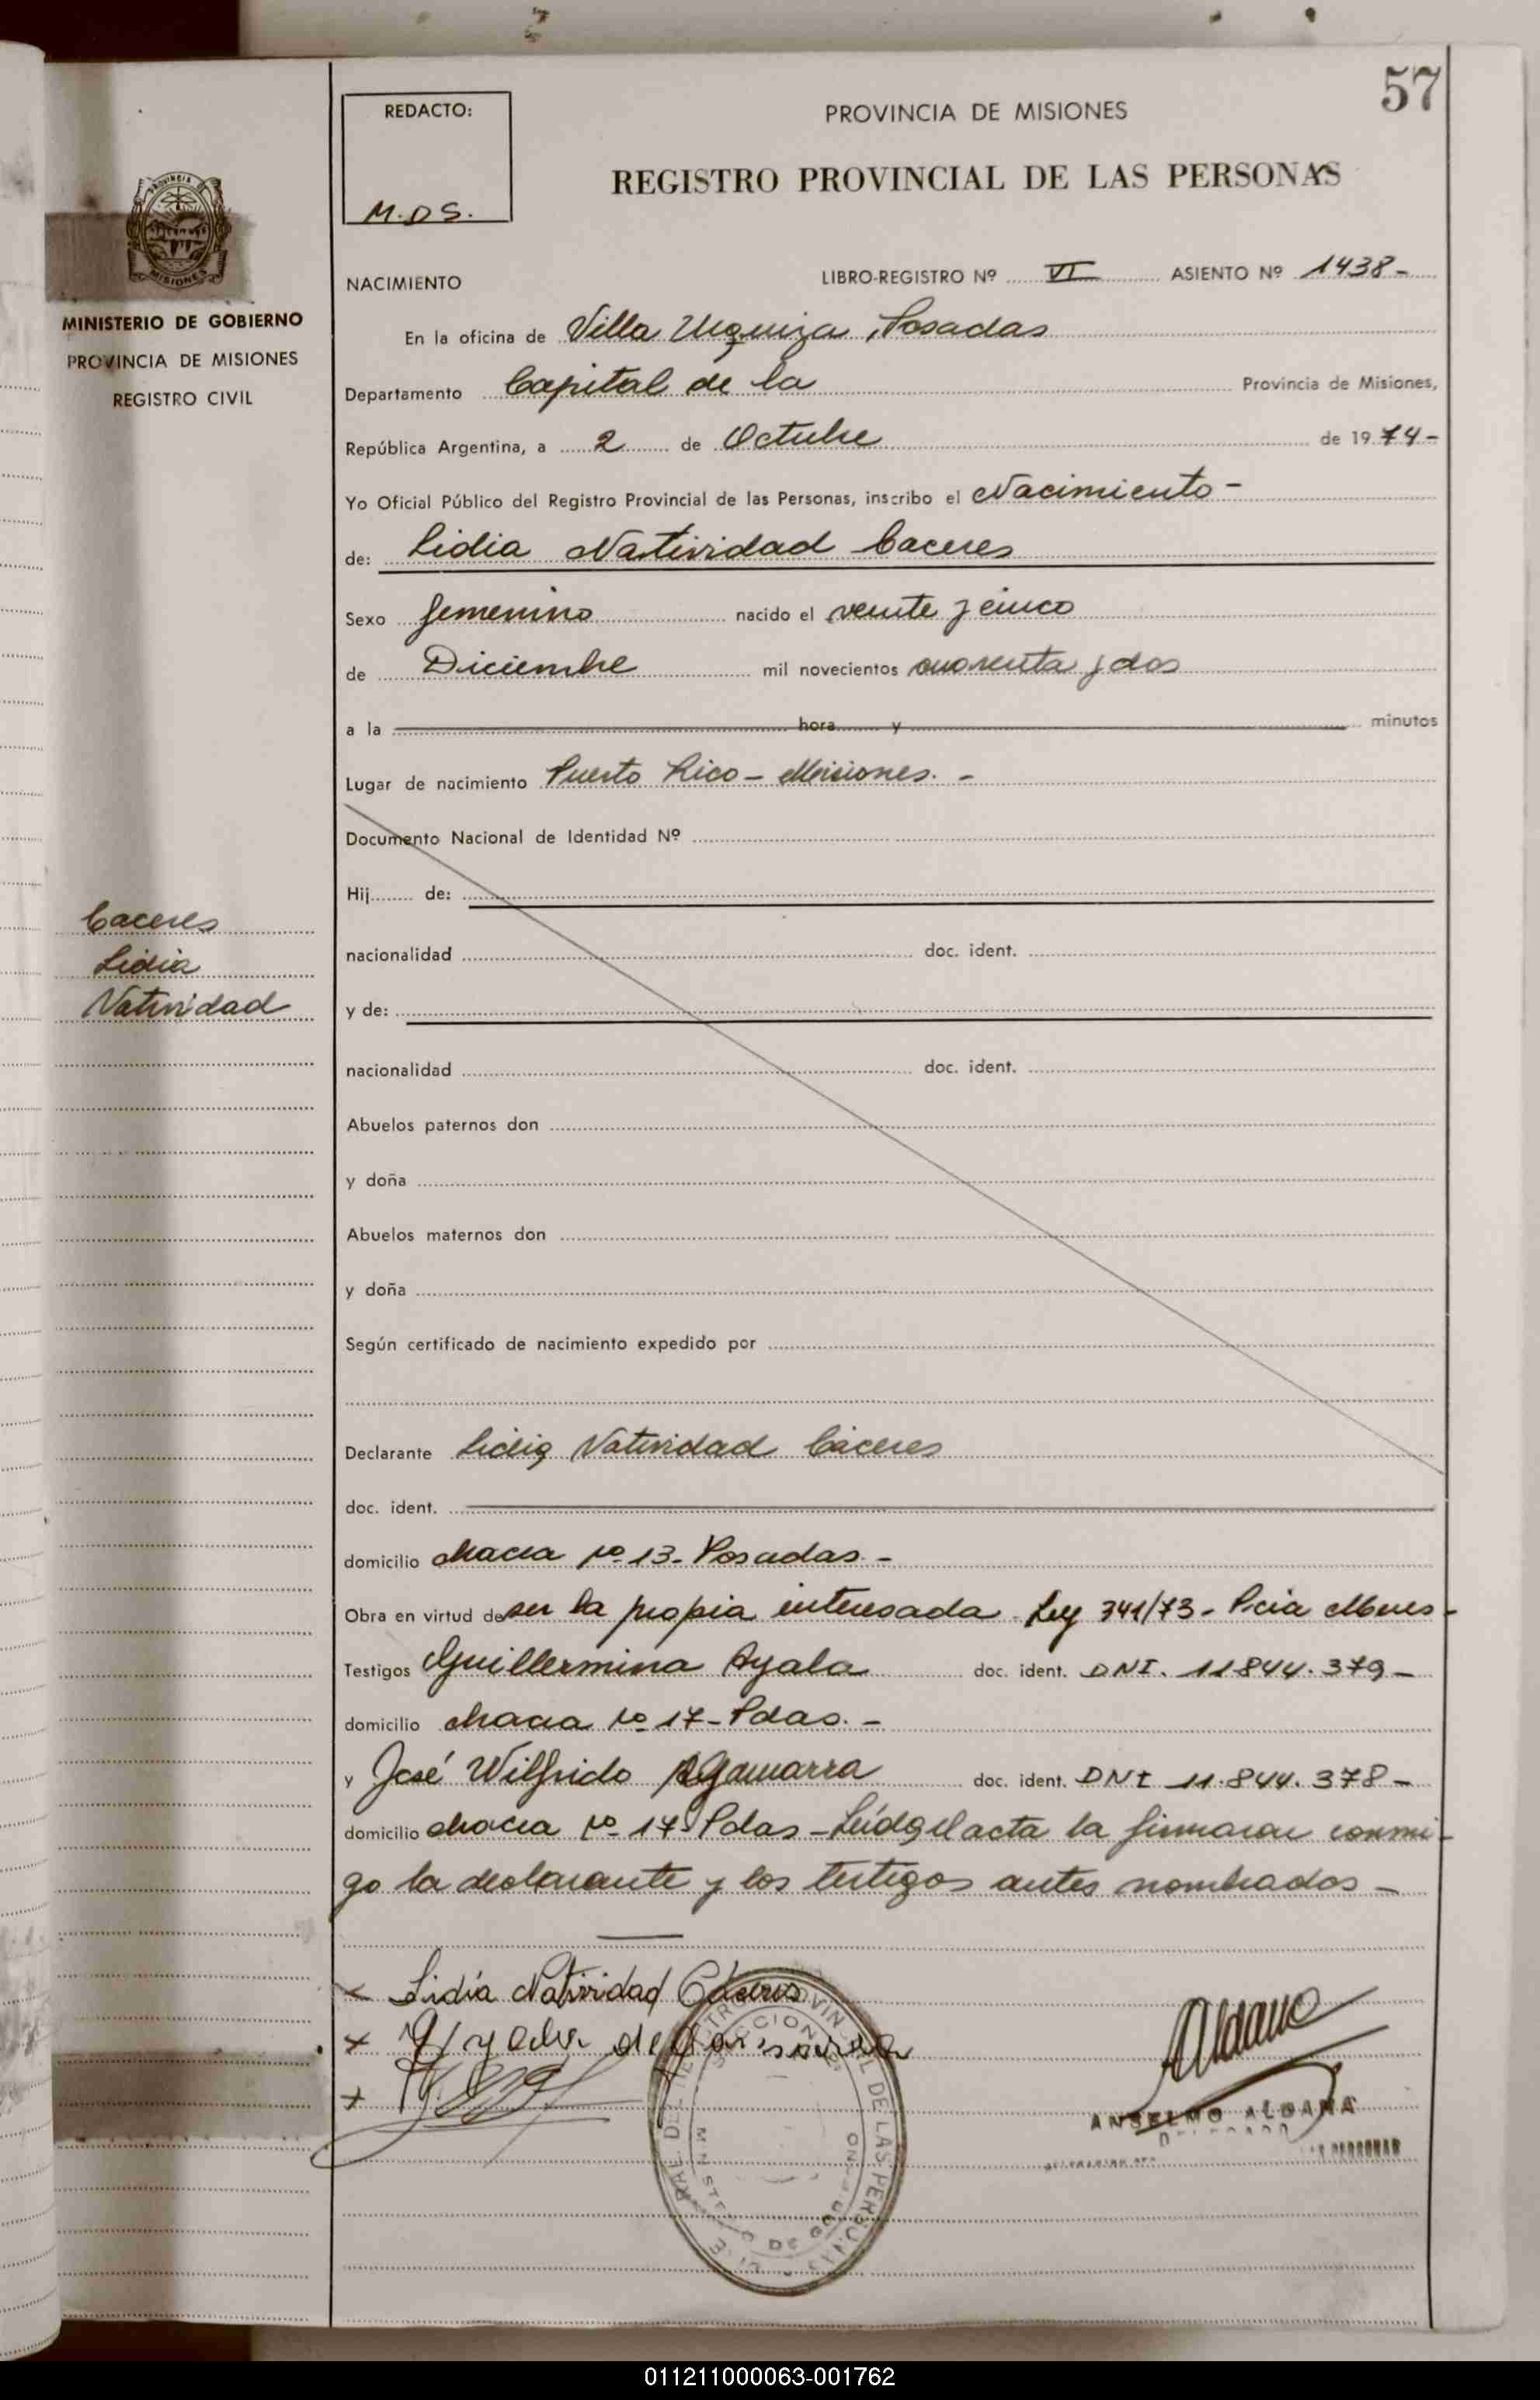 57
REDACTO:
M.D.S.
PROVINCIA DE MISIONES
REGISTRO PROVINCIAL DE LAS PERSONAS
PROVINCIA DE
MISIONES
MINISTERIO DE GOBIERNO
PROVINCIA DE MISIONES
REGISTRO CIVIL
NACIMIENTO LIBRO-REGISTRO Nº VI ASIENTO Nº 1438-
En la oficina de Villa Urquiza, Posadas
Departamento Capital de la Provincia de Misiones,
República Argentina, a 2 de Octubre de 1974-
Yo Oficial Público del Registro Provincial de las Personas, inscribo el Nacimiento-
de: Lidia Natividad Caceres
Sexo femenino nacido el veinte y cinco
de Diciembre mil novecientos cuarenta y dos
a la hora y minutos
Lugar de nacimiento Puerto Rico - Misiones. -
Documento Nacional de Identidad Nº
Hij de:
Caceres
Lidia
Natividad
nacionalidad doc. ident.
y de:
nacionalidad doc. ident.
Abuelos paternos don
y doña
Abuelos maternos don
y doña
Según certificado de nacimiento expedido por
Declarante Lidia Natividad Cáceres
doc. ident.
domicilio chacra Nº 13- Posadas -
Obra en virtud de ser la propia interesada Ley 341/73- Pcia Mnes-
Testigos Guillermina Ayala doc. ident. DNI. 11844.379-
domicilio chacra Nº 17- Pdas. -
y José Wilfrido Gamarra doc. ident. DNI 11.844.378-
domicilio chacra Nº 17- Pdas - Leída el acta la firmaron conmi-
go la declarante y los testigos antes nombrados -
x Lidia Natividad Cáceres
x
x
Aldana
ANSELMO ALDANA
DELEGADO
LAS PERSONAS
MINISTERIO DE GOBIERNO
011211000063-001762